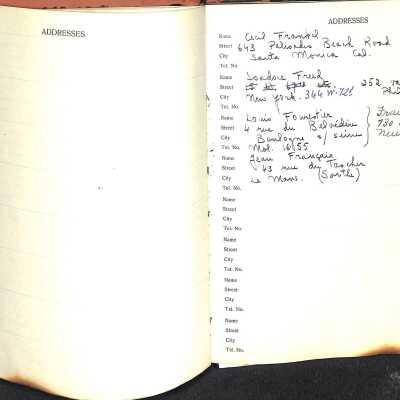 ADDRESSES
ADDRESSES
Name Cecil Frankl
Street 643 Palisades Beach Road
City Santa Monica Cal.
Tel. No.
Name Freed
Street 252
City New York. 344 W. 72
Tel. No.
Name Louis Fourestier
Street 4 rue du Belvédère
City Boulogne s/ seine
Tel. No. Mol. 16 55
Name Jean Françaix
Street 43 rue du Tascher
City Le Mans. (Sarthe)
Tel. No.
Name
Street
City
Tel. No.
Name
Street
City
Tel. No.
Name
Street
City
Tel. No.
Name
Street
City
Tel. No.